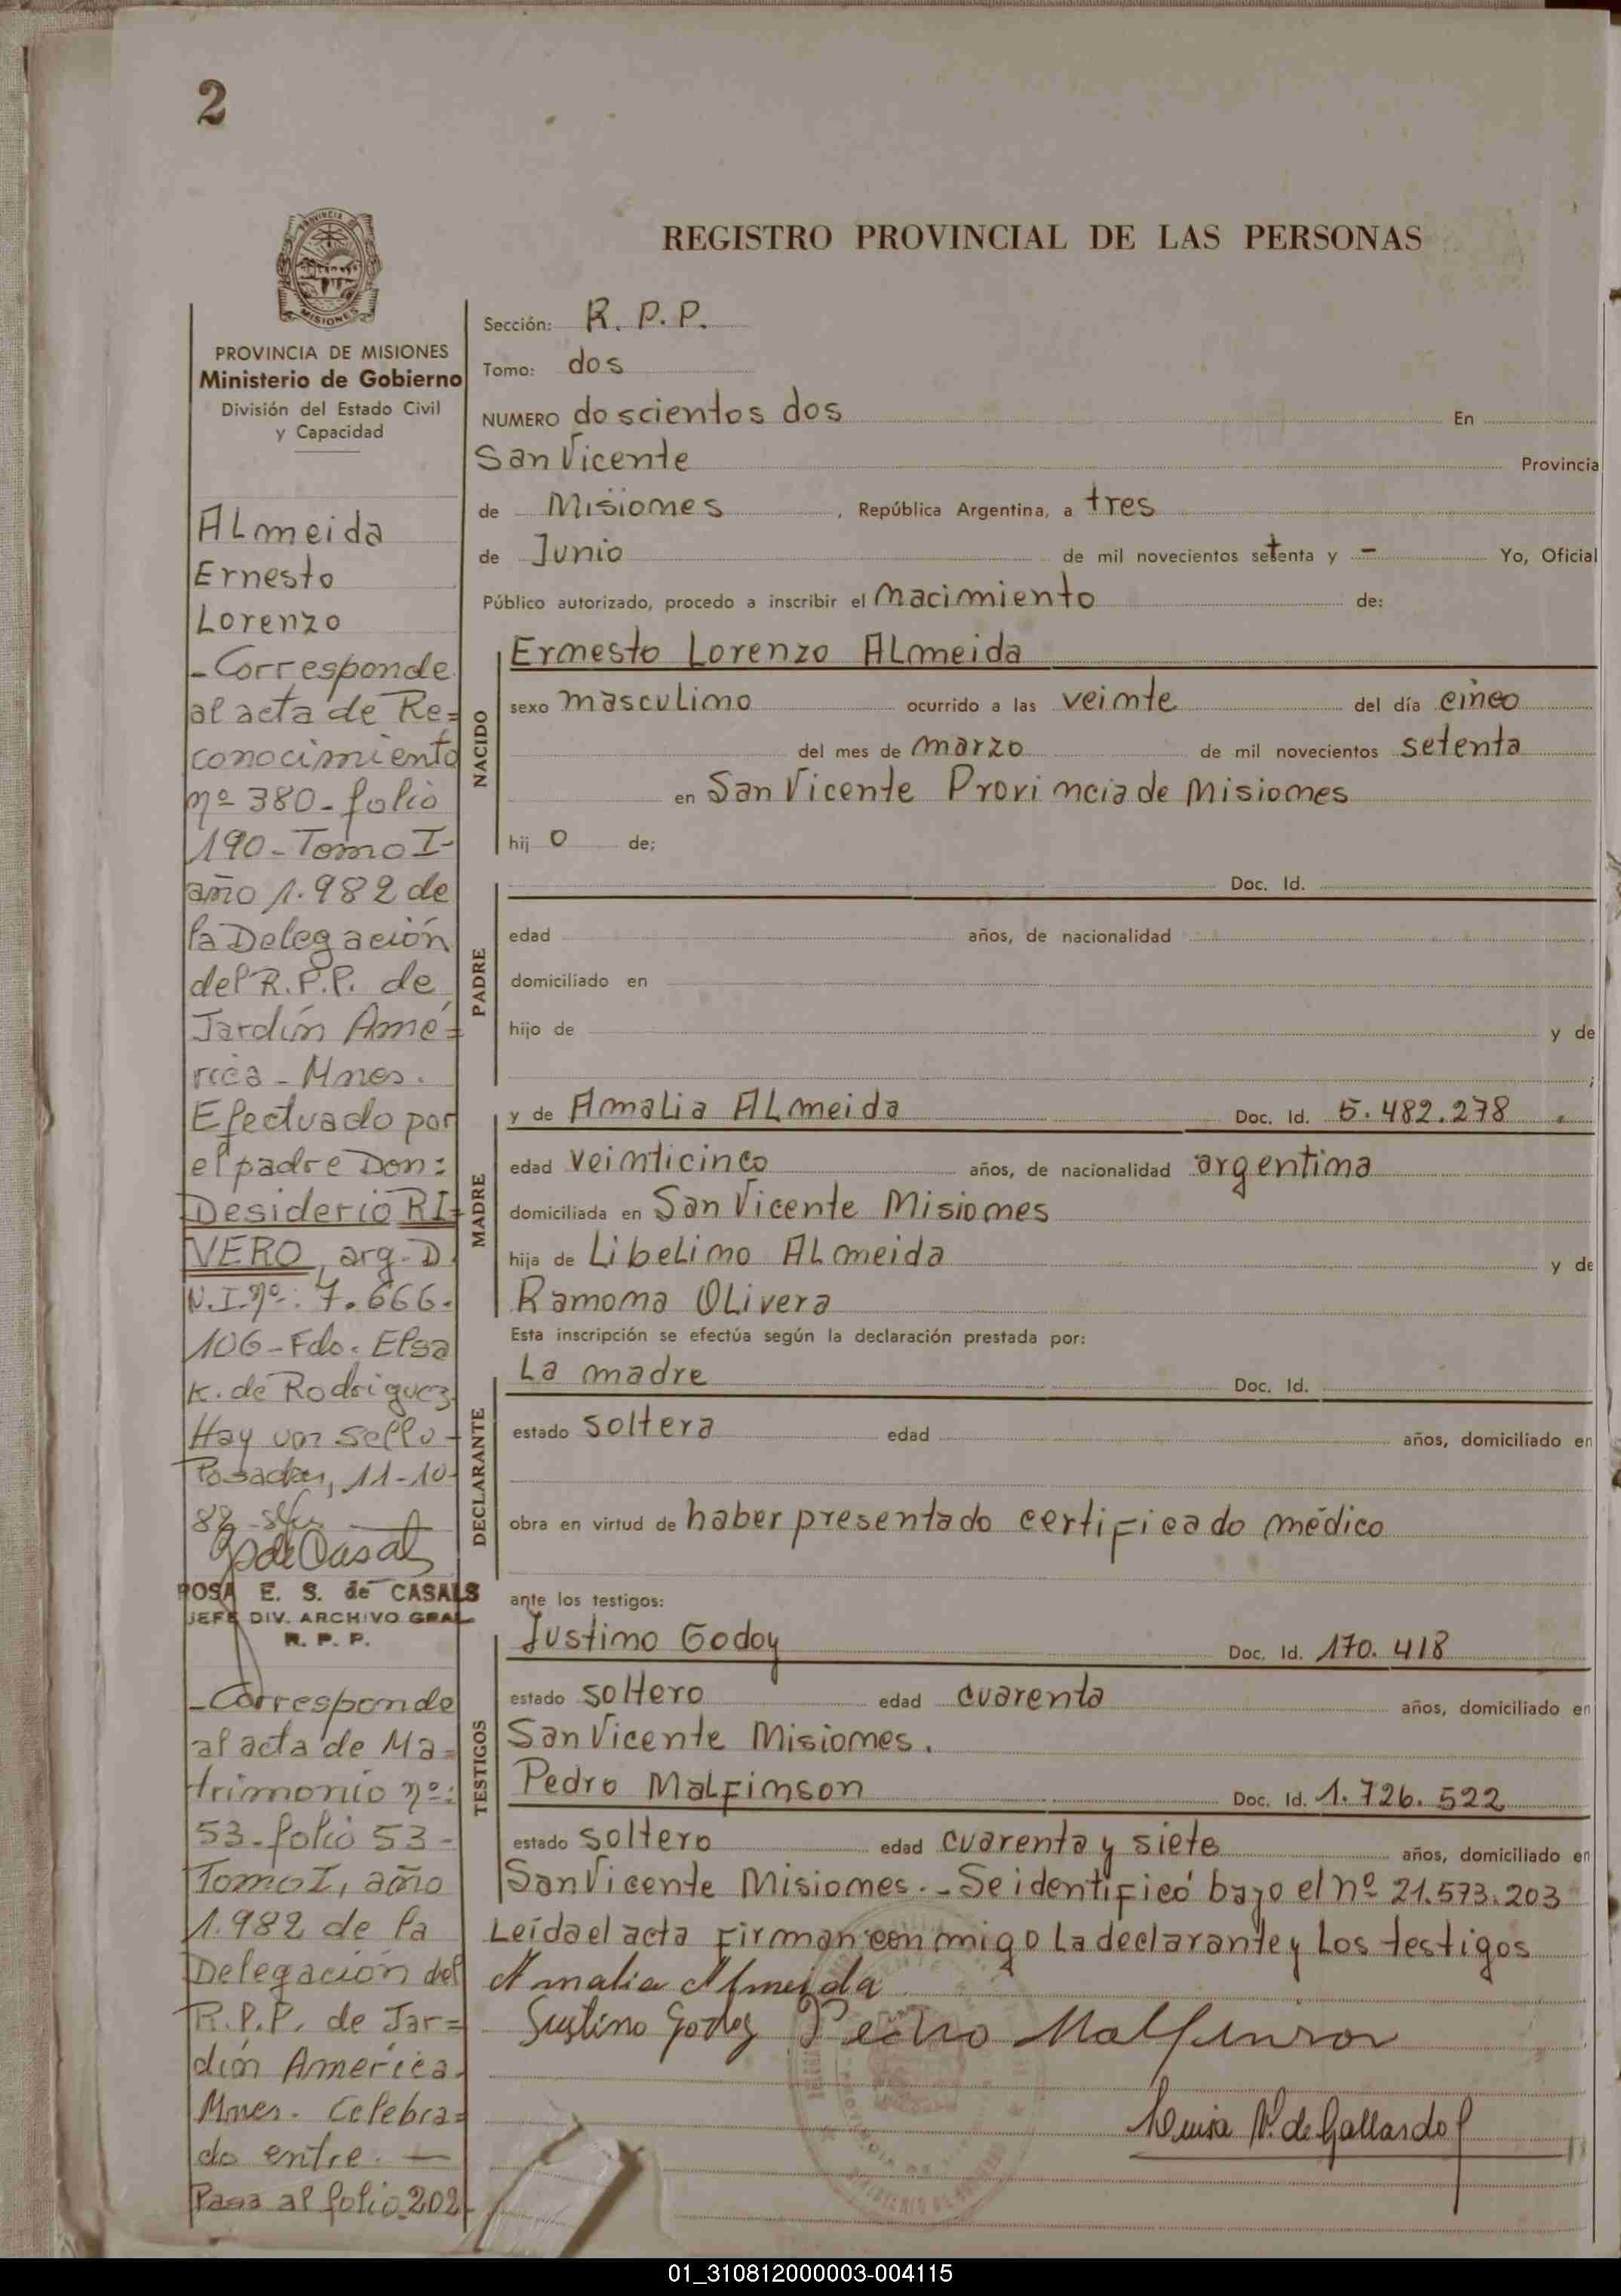 2
PROVINCIA DE MISIONES
Ministerio de Gobierno
División del Estado Civil
y Capacidad
ALmeida
Ernesto
Lorenzo
-Corresponde
al acta de Re=
conocimiento
nº 380-folio
190-Tomo I-
año 1.982 de
la Delegación
del R.P.P. de
Jardín Amé=
rica-Mnes.
Efectuado por
el padre Don:
Desiderio RI=
VERO, arg-D.
N.I.nº: 7.666.
106-Fdo. Elsa
K. de Rodriguez
Hay un sello-
Posadas, 11-10-
88
ROSA E. S. de CASALS
JEFE DIV. ARCHIVO GRAL
R. P. P.
-Corresponde
al acta de Ma=
trimonio nº:
53-folio 53-
Tomo I, año
1.982 de la
Delegación del
R.P.P. de Jar=
dín América.
Mnes. Celebra=
do entre. —
Pasa al folio 202
REGISTRO PROVINCIAL DE LAS PERSONAS
Sección: R. P. P.
Tomo: dos
NUMERO doscientos dos En
San Vicente Provincia
de Misiones, República Argentina, a tres
de Junio de mil novecientos setenta y - Yo, Oficial
Público autorizado, procedo a inscribir el nacimiento de:
NACIDO
Ernesto Lorenzo ALmeida
sexo masculino ocurrido a las veinte del día cinco
del mes de marzo de mil novecientos setenta
en San Vicente Provincia de Misiones
hij o de;
PADRE
Doc. Id.
edad años, de nacionalidad
domiciliado en
hijo de y de
;
MADRE
y de Amalia ALmeida Doc. Id. 5.482.278
edad veinticinco años, de nacionalidad argentina
domiciliada en San Vicente Misiones
hija de Libelino ALmeida y de
Ramona OLivera
Esta inscripción se efectúa según la declaración prestada por:
DECLARANTE
La madre Doc. Id.
estado soltera edad años, domiciliado en
obra en virtud de haber presentado certificado médico
ante los testigos:
TESTIGOS
Justino Godoy Doc. Id. 170.418
estado soltero edad cuarenta años, domiciliado en
San Vicente Misiones.
Pedro MaLfinson Doc. Id. 1.726.522
estado soltero edad cuarenta y siete años, domiciliado en
San Vicente Misiones.-Se identificó bajo el nº 21.573.203
Leída el acta firman conmigo La declarante y Los testigos
Amalia Almeida
Justino Godoy Pedro Malfinson
Luisa N. de Gallardo
01_310812000003-004115